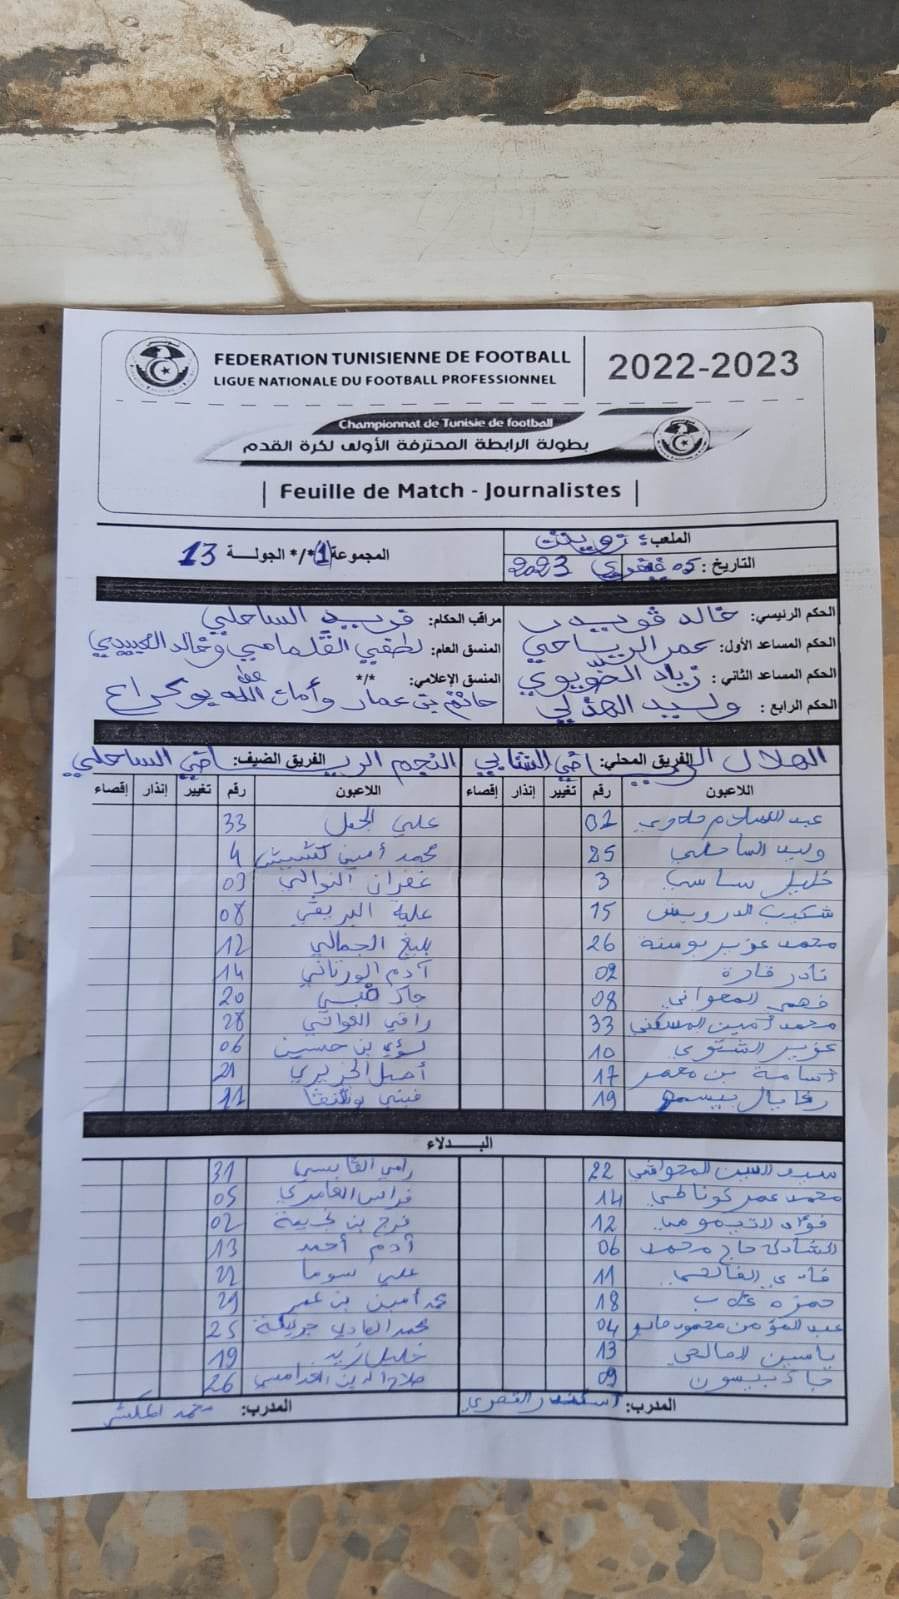 FEDERATION TUNISIENNE DE FOOTBALL
LIGUE NATIONALE DU FOOTBALL PROFESSIONNEL
2022-2023
Championnat de Tunisie de football
بطولة الرابطة المحترفة الأولى لكرة القدم
| Feuille de Match - Journalistes |
الملعب: زويتن
المجموعة 1 */* الجولة 13
التاريخ: 05 فيفري 2023
الحكم الرئيسي: خالد قويدر
مراقب الحكام: فريد الساحلي
الحكم المساعد الأول: عمر الرياحي
المنسق العام: لطفي القلمامي وخالد العبيدي
الحكم المساعد الثاني: زياد الخويوي
المنسق الإعلامي: */*
الحكم الرابع: وليد الهذلي
حاتم بن عمار وأمان الله بوكراع
الفريق المحلي: الهلال الرياضي الشابي
الفريق الضيف: النجم الرياضي الساحلي
اللاعبون رقم تغيير إنذار إقصاء اللاعبون رقم تغيير إنذار إقصاء
عبد السلام حلاوي 01 علي الجمل 33
وليد الساحلي 25 محمد أمين 4
خليل ساسي 3 غفران النوالي 03
شكيب الدرويش 15 علية البريقي 08
محمد عزيز بوسنة 26 بليغ الجمالي 12
نادر قارة 02 آدم الورتاني 14
فهمي المعواني 08 جاك مبي 20
محمد أمين المسكني 33 راقي العواني 28
عزيز الشتوي 10 لؤي بن حسين 06
أسامة بن معمر 17 أصيل الجزيري 21
19 11
البدلاء
22 رامي القابسي 31
محمد عمر كوناطي 14 فراس العامري 05
فؤاد التيمومي 12 فرج بن نجيمة 02
الشاذلي حاج محمد 06 آدم أحمد 13
فادي الفالحي 11 علي سوما 22
حمزة 18 محمد أمين بن عمر 29
عبد المؤمن محمود 04 محمد الهادي 25
ياسين الصالحي 13 خليل زيد 19
09 صلاح الدين الغدامسي 26
المدرب: اسكندر القصري
المدرب: محمد المكشر